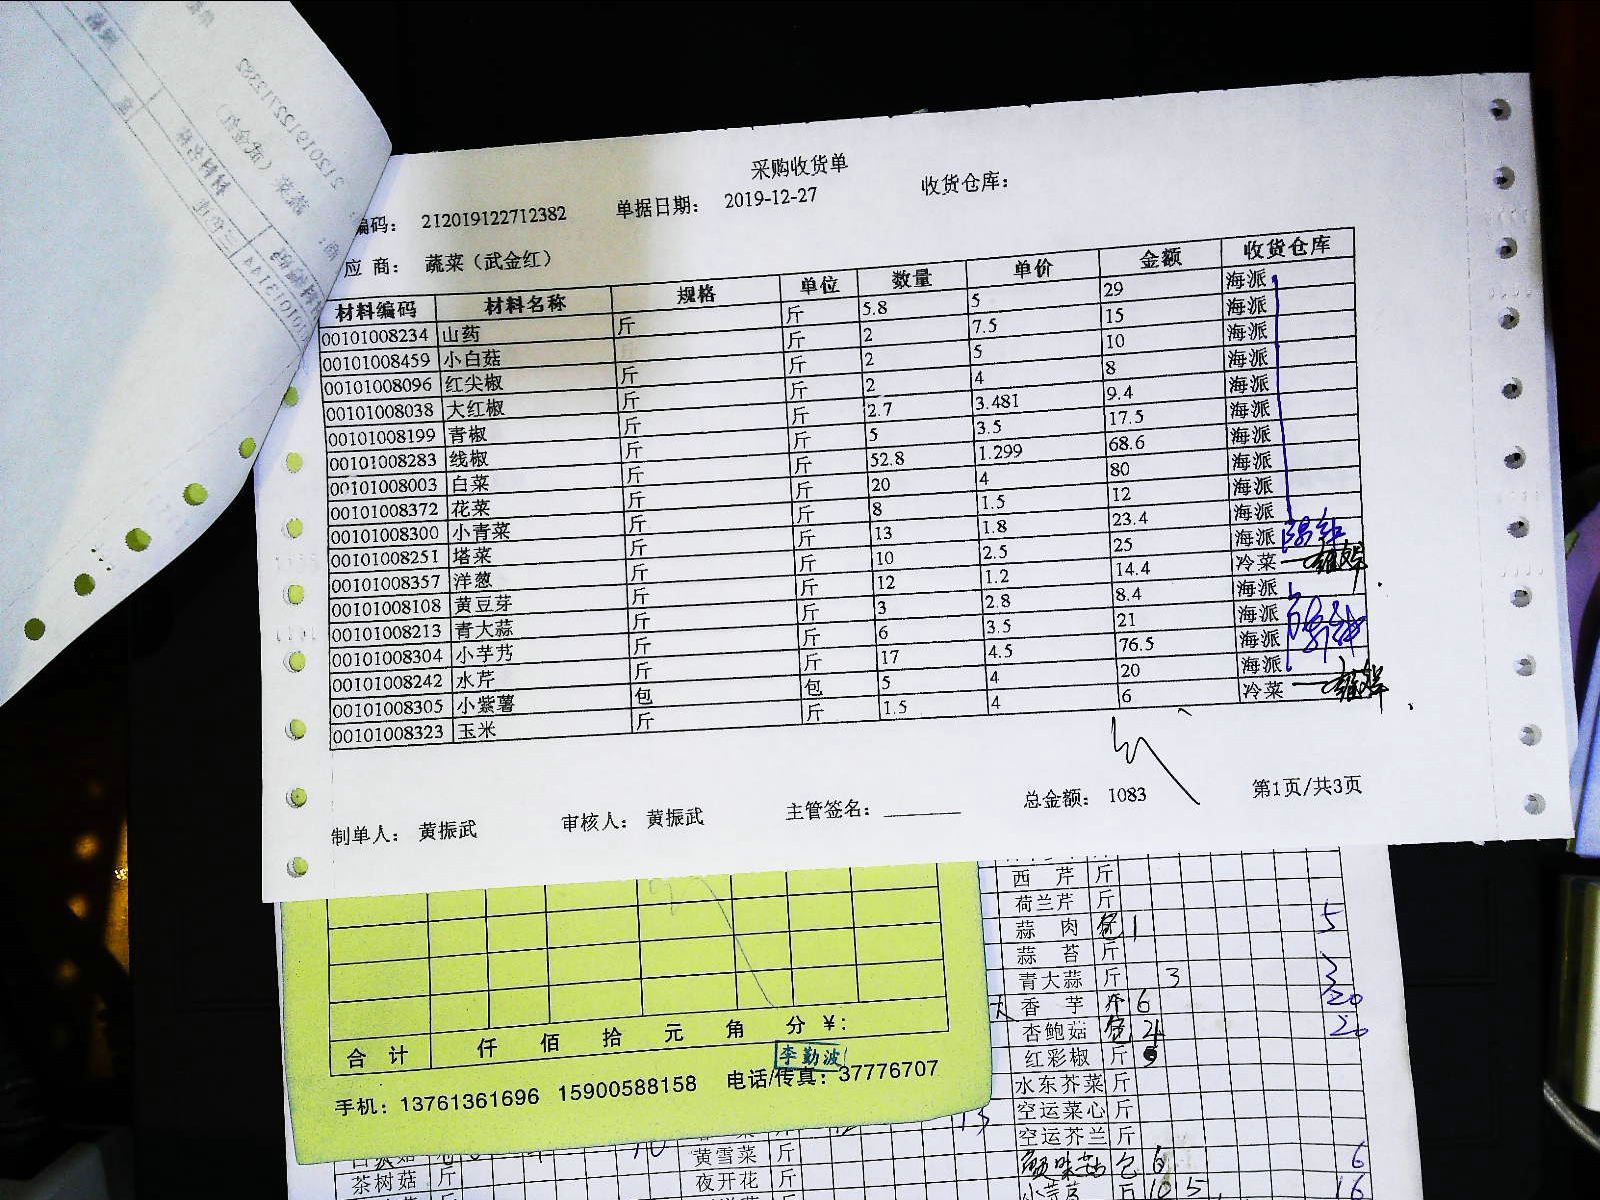 采购收货单
编码： 212019122712382 单据日期： 2019-12-27 收货仓库：
应 商： 蔬菜（武金红）
材料编码 材料名称 规格 单位 数量 单价 金额 收货仓库
00101008234 山药 斤 斤 5.8 5 29 海派
00101008459 小白菇 斤 2 7.5 15 海派
00101008096 红尖椒 斤 斤 2 5 10 海派
00101008038 大红椒 斤 斤 2 4 8 海派
00101008199 青椒 斤 斤 2.7 3.481 9.4 海派
00101008283 线椒 斤 斤 5 3.5 17.5 海派
00101008003 白菜 斤 斤 52.8 1.299 68.6 海派
00101008372 花菜 斤 斤 20 4 80 海派
00101008300 小青菜 斤 斤 8 1.5 12 海派
00101008251 塔菜 斤 斤 13 1.8 23.4 海派
00101008357 洋葱 斤 斤 10 2.5 25 海派
00101008108 黄豆芽 斤 斤 12 1.2 14.4 冷菜
00101008213 青大蒜 斤 斤 3 2.8 8.4 海派
00101008304 小芋艿 斤 斤 6 3.5 21 海派
00101008242 水芹 斤 斤 17 4.5 76.5 海派
00101008305 小紫薯 包 包 5 4 20 海派
00101008323 玉米 斤 斤 1.5 4 6 冷菜
制单人： 黄振武 审核人： 黄振武 主管签名： 总金额： 1083 第1页/共3页
合 计 仟 佰 拾 元 角 分 ¥:
李勤波
手机：13761361696 15900588158 电话/传真：37776707
西 芹 斤
荷兰芹 斤
蒜 肉 包 1 5
蒜 苔 斤
青大蒜 斤 3 3
香 芋 斤 6 20
杏鲍菇 包 4 20
红彩椒 斤
水东芥菜 斤
空运菜心 斤 13
空运芥兰 斤
黄雪菜 斤 包 6 6
茶树菇 斤 夜开花 斤 斤 10 5 16